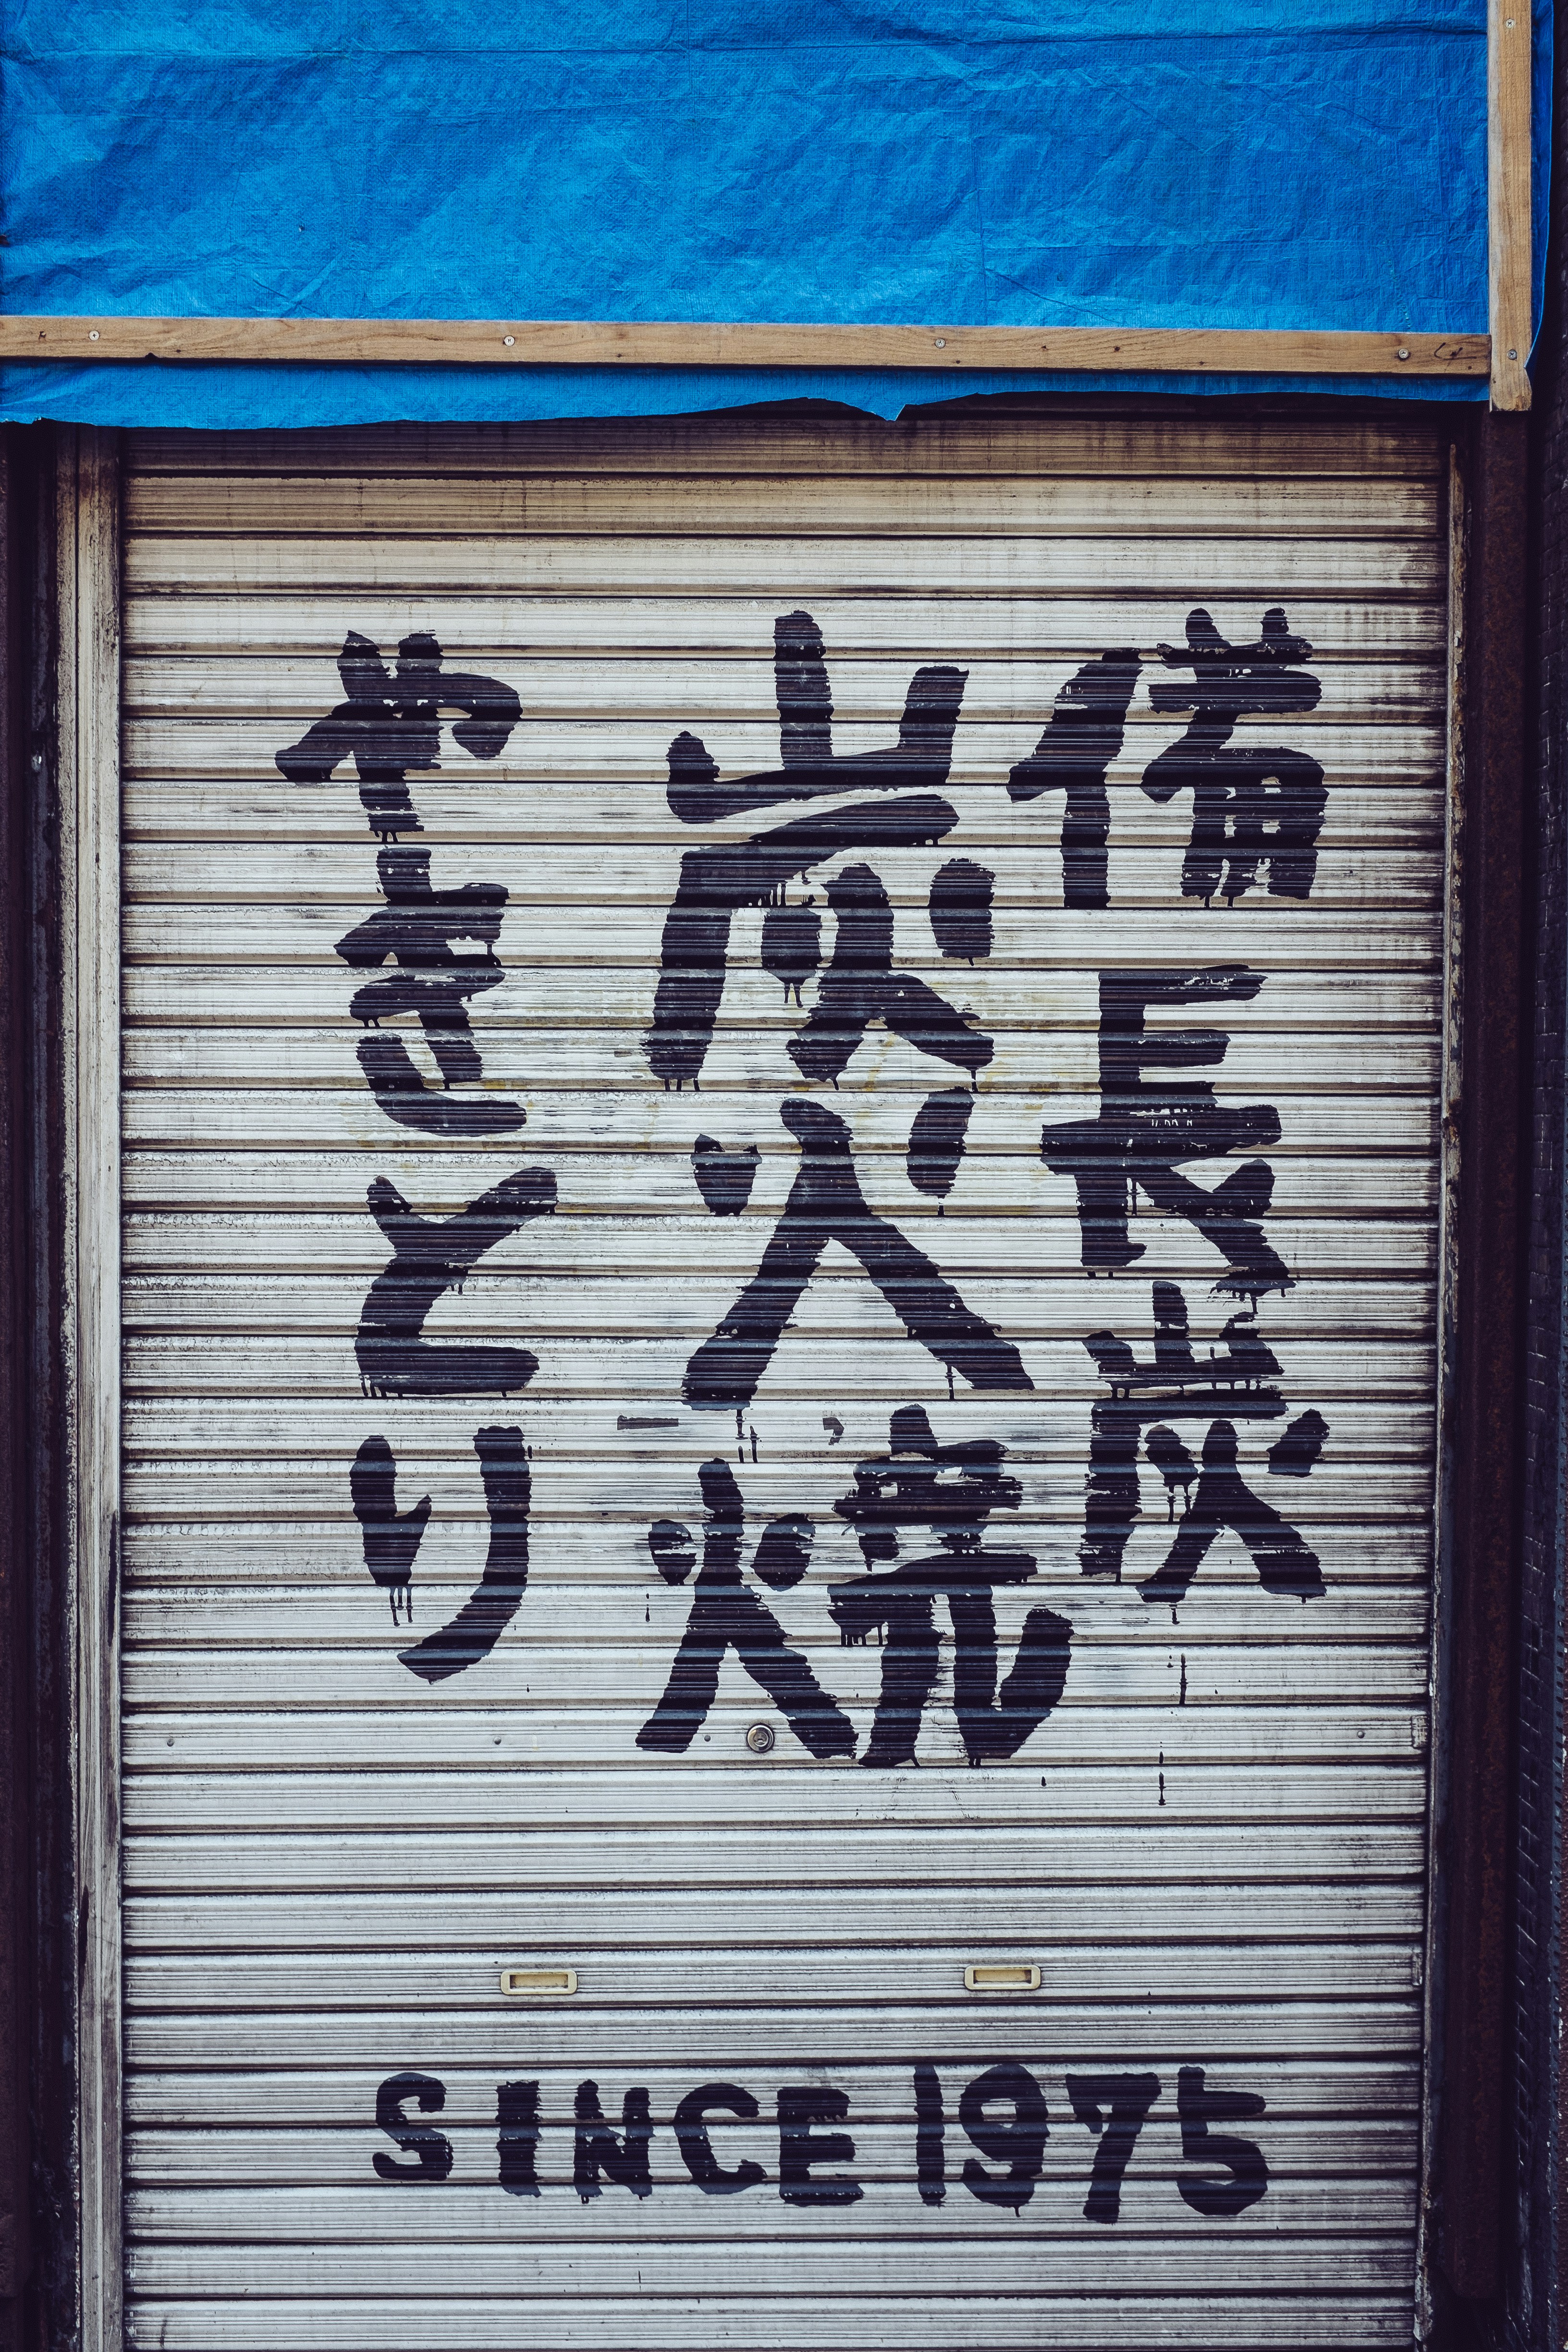 備長炭
炭火焼
やきとり
SINCE 1975